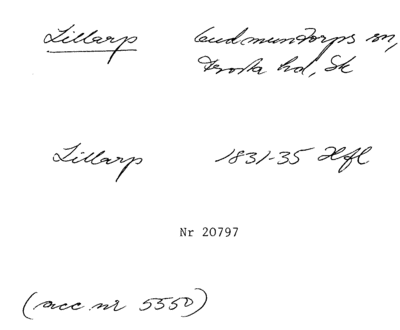 Lillarp Gudmundtorps sn,
Frosta hd, Sk
Lillarp 1831-35 Hfl
Nr 20797
(acc nr 5550)